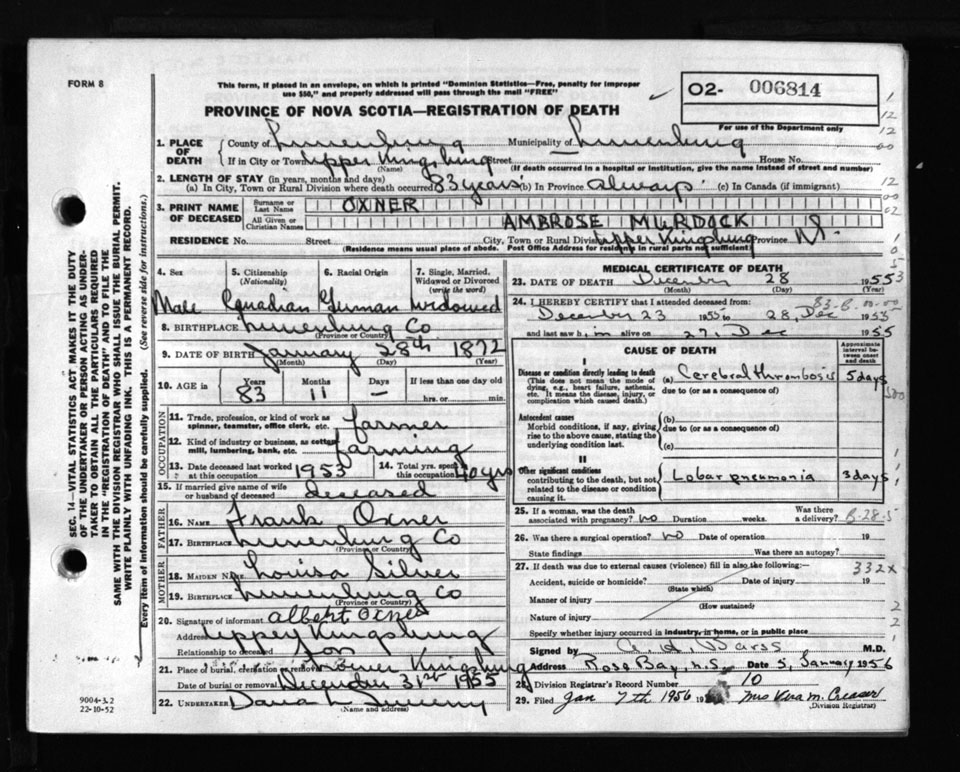 FORM 8
This form, if placed in an envelope, on which is printed "Dominion Statistics—Free, penalty for improper
use $50," and properly addressed will pass through the mail "FREE"
PROVINCE OF NOVA SCOTIA—REGISTRATION OF DEATH
02- 006814
For use of the Department only
1. PLACE OF DEATH
County of Lunenburg Municipality of Lunenburg
If in City or Town Upper Kingsburg Street House No.
(Name) (If death occurred in a hospital or institution, give the name instead of street and number)
2. LENGTH OF STAY (in years, months and days)
(a) In City, Town or Rural Division where death occurred 83 years (b) In Province always (c) In Canada (if immigrant)
3. PRINT NAME OF DECEASED
Surname or Last Name OXNER
All Given or Christian Names AMBROSE MURDOCK
RESIDENCE No. Street City, Town or Rural Division Upper Kingsburg Province N.S.
(Residence means usual place of abode. Post Office Address for residents in rural parts not sufficient)
4. Sex Male
5. Citizenship (Nationality) Canadian
6. Racial Origin German
7. Single, Married, Widowed or Divorced (write the word) widowed
8. BIRTHPLACE Lunenburg Co
(Province or Country)
9. DATE OF BIRTH January 28th 1872
(Month) (Day) (Year)
10. AGE in Years 83 Months 11 Days — If less than one day old
hrs. or min.
OCCUPATION
11. Trade, profession, or kind of work as spinner, teamster, office clerk, etc. farmer
12. Kind of industry or business, as cotton mill, lumbering, bank, etc. farming
13. Date deceased last worked at this occupation 1953 14. Total yrs. spent this occupation 40 yrs
15. If married give name of wife or husband of deceased deceased
FATHER
16. NAME Frank Oxner
17. BIRTHPLACE Lunenburg Co
(Province or Country)
MOTHER
18. MAIDEN NAME Louisa Silver
19. BIRTHPLACE Lunenburg Co
(Province or Country)
20. Signature of informant Albert Oxner
Address Upper Kingsburg
Relationship to deceased son
21. Place of burial, cremation or removal Lower Kingsburg
Date of burial or removal December 31st 1955
22. UNDERTAKER
(Name and address)
MEDICAL CERTIFICATE OF DEATH
23. DATE OF DEATH December 28 1955
(Month) (Day) (Year)
24. I HEREBY CERTIFY that I attended deceased from:
December 23 1955 to 28, Dec 1955
and last saw him alive on 27, Dec 1955
CAUSE OF DEATH
Approximate interval between onset and death
I
Disease or condition directly leading to death
(This does not mean the mode of dying, e.g., heart failure, asthenia, etc. It means the disease, injury, or complication which caused death.)
(a) Cerebral thrombosis 5 days
due to (or as a consequence of)
Antecedent causes
Morbid conditions, if any, giving rise to the above cause, stating the underlying condition.
(b)
due to (or as a consequence of)
(c)
II
Other significant conditions
contributing to the death, but not related to the disease or condition causing it.
Lobar pneumonia 3 days
25. If a woman, was the death associated with pregnancy? NO Duration weeks. Was there a delivery?
26. Was there a surgical operation? NO Date of operation 19
State findings Was there an autopsy?
27. If death was due to external causes (violence) fill in also the following:—
332X
Accident, suicide or homicide? Date of injury 19
(State which)
Manner of injury
(How sustained)
Nature of injury
Specify whether injury occurred in industry, in home, or in public place
Signed by Barss M.D.
Address Rose Bay, N.S. Date 5, January 1956
28. Division Registrar's Record Number 10
29. Filed Jan 7th 1956 Mrs Vera M. Creaser
(Division Registrar)
SEC. 14—VITAL STATISTICS ACT MAKES IT THE DUTY
OF THE UNDERTAKER OR PERSON ACTING AS UNDER-
TAKER TO OBTAIN ALL THE PARTICULARS REQUIRED
IN THE "REGISTRATION OF DEATH" AND TO FILE THE
SAME WITH THE DIVISION REGISTRAR WHO SHALL ISSUE THE BURIAL PERMIT.
WRITE PLAINLY WITH UNFADING INK. THIS IS A PERMANENT RECORD.
Every item of information should be carefully supplied. (See reverse side for instructions.)
9004-3.2
22-10-52